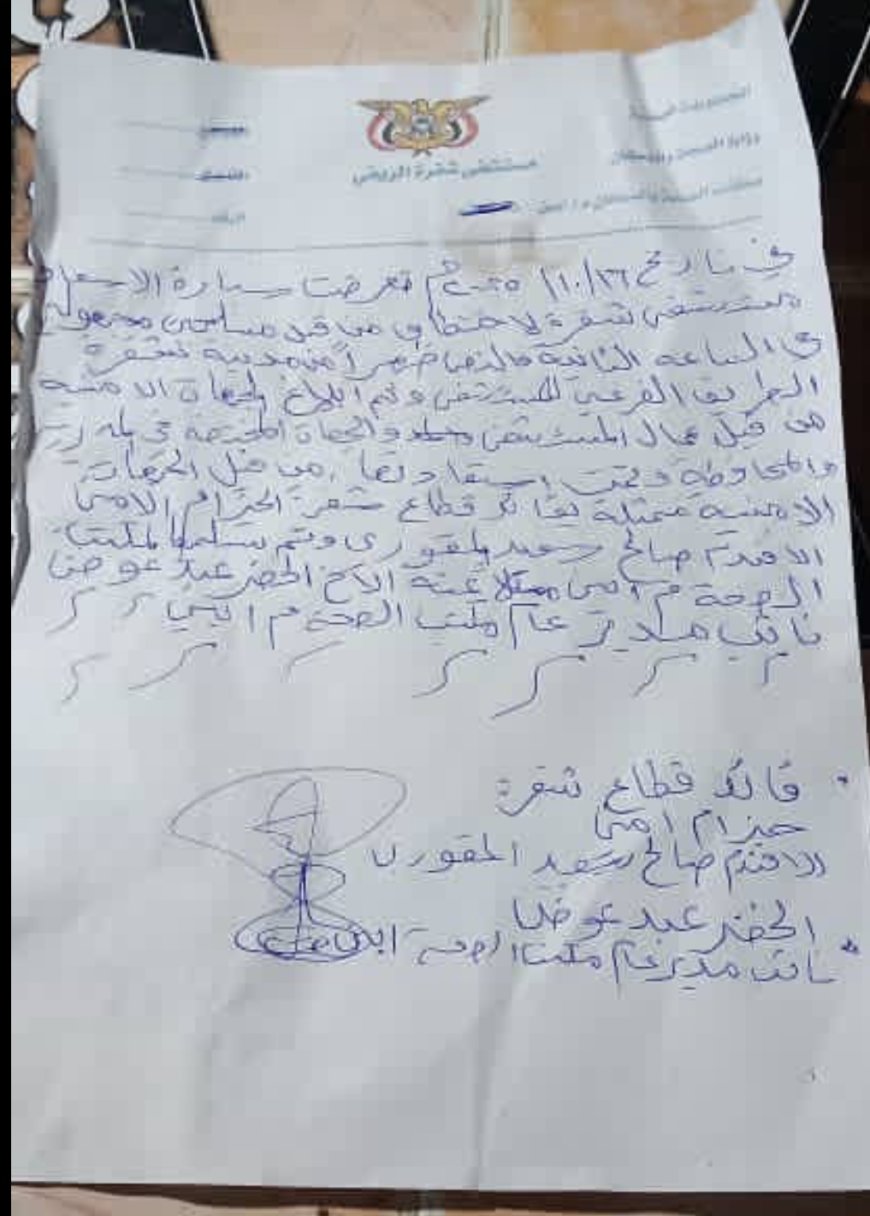 الجمهورية اليمنية
وزارة الصحة والسكان
مستشفى شقرة الريفي
في تاريخ ١٠/٢٦/ تعرضت سيارة الاسعاف
مستشفى شقرة لاختطاف من قبل مسلحين مجهولين
في الساعه الثانية والنصف ظهراً من مدينة شقرة
الطريق الفرعي للمستشفى وتم ابلاغ الجهات الامنيه
من قبل عمال المستشفى والجهات المختصة في
والمحافظة وتمت استعادتها من قبل الجهات
الامنيه ممثلة بقائد قطاع شقرة الحزام الامني
الافندم صالح سعيد المقوري وتم تسليمها لمكتب
الصحة م ابين ممثلا عنه الاخ الخضر عبد عوض
نائب مدير عام مكتب الصحة م ابين
قائد قطاع شقرة
حزام امني
الافندم صالح سعيد المقوري
الخضر عبد عوض
نائب مدير عام مكتب الصحة ابين